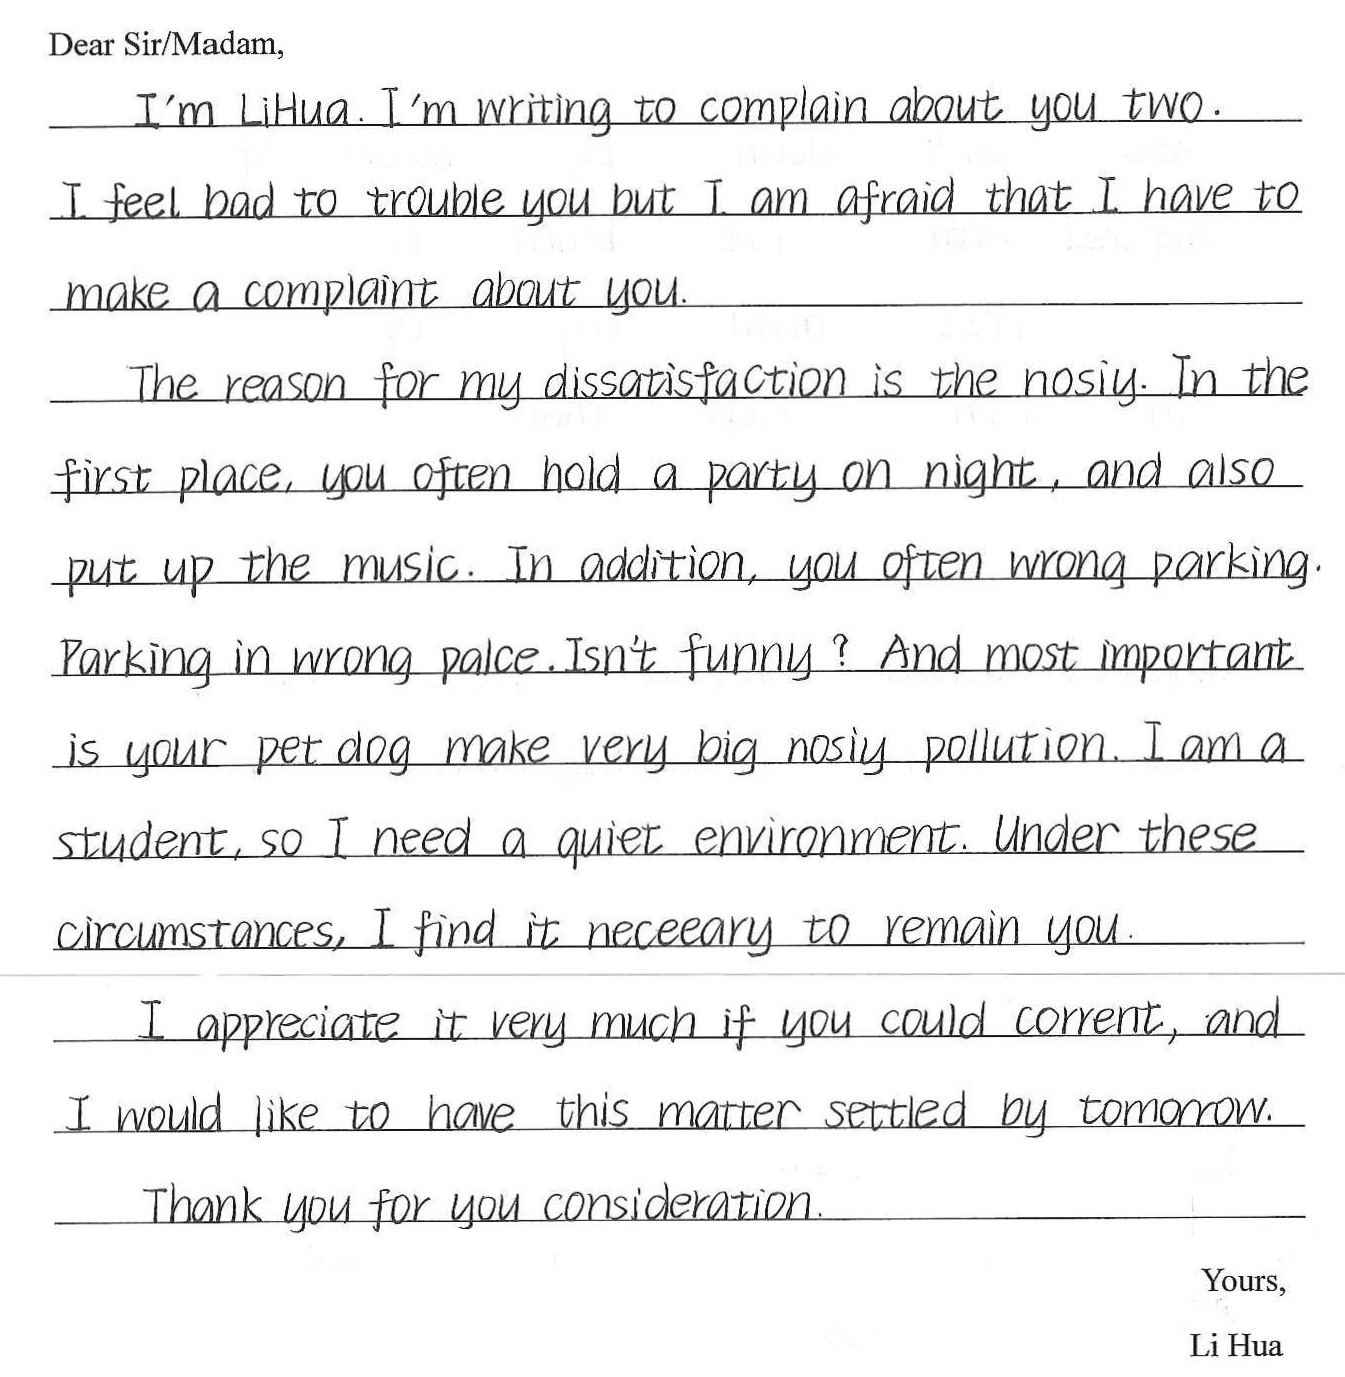 Dear Sir/Madam,
I'm LiHua. I'm writing to complain about you two.
I feel bad to trouble you but I am afraid that I have to
make a complaint about you.
The reason for my dissatisfaction is the nosiy. In the
first place, you often hold a party on night, and also
put up the music. In addition, you often wrong parking.
Parking in wrong palce. Isn't funny? And most important
is your pet dog make very big nosiy pollution. I am a
student, so I need a quiet environment. Under these
circumstances, I find it neceeary to remain you.
I appreciate it very much if you could corrent, and
I would like to have this matter settled by tomorrow.
Thank you for you consideration.
Yours,
Li Hua